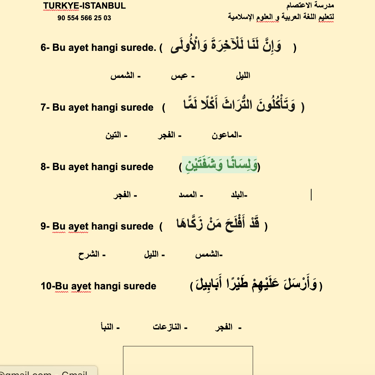 TURKYE-ISTANBUL مدرسة الاعتصام
90 554 566 25 03 لتعليم اللغة العربية و العلوم الإسلامية
6- Bu ayet hangi surede. ( وَإِنَّ لَنَا لَلْآخِرَةَ وَالْأُولَى )
الليل - عبس - الشمس
7- Bu ayet hangi surede ( وَتَأْكُلُونَ التُّرَاثَ أَكْلًا لَمًّا )
-الماعون - الفجر - التين
8- Bu ayet hangi surede (وَلِسَانًا وَشَفَتَيْنِ)
-البلد - المسد - الفجر
9- Bu ayet hangi surede ( قَدْ أَفْلَحَ مَنْ زَكَّاهَا )
-الشمس - الليل - الشرح
10-Bu ayet hangi surede ( وَأَرْسَلَ عَلَيْهِمْ طَيْرًا أَبَابِيلَ )
- الفجر - النازعات - النبأ